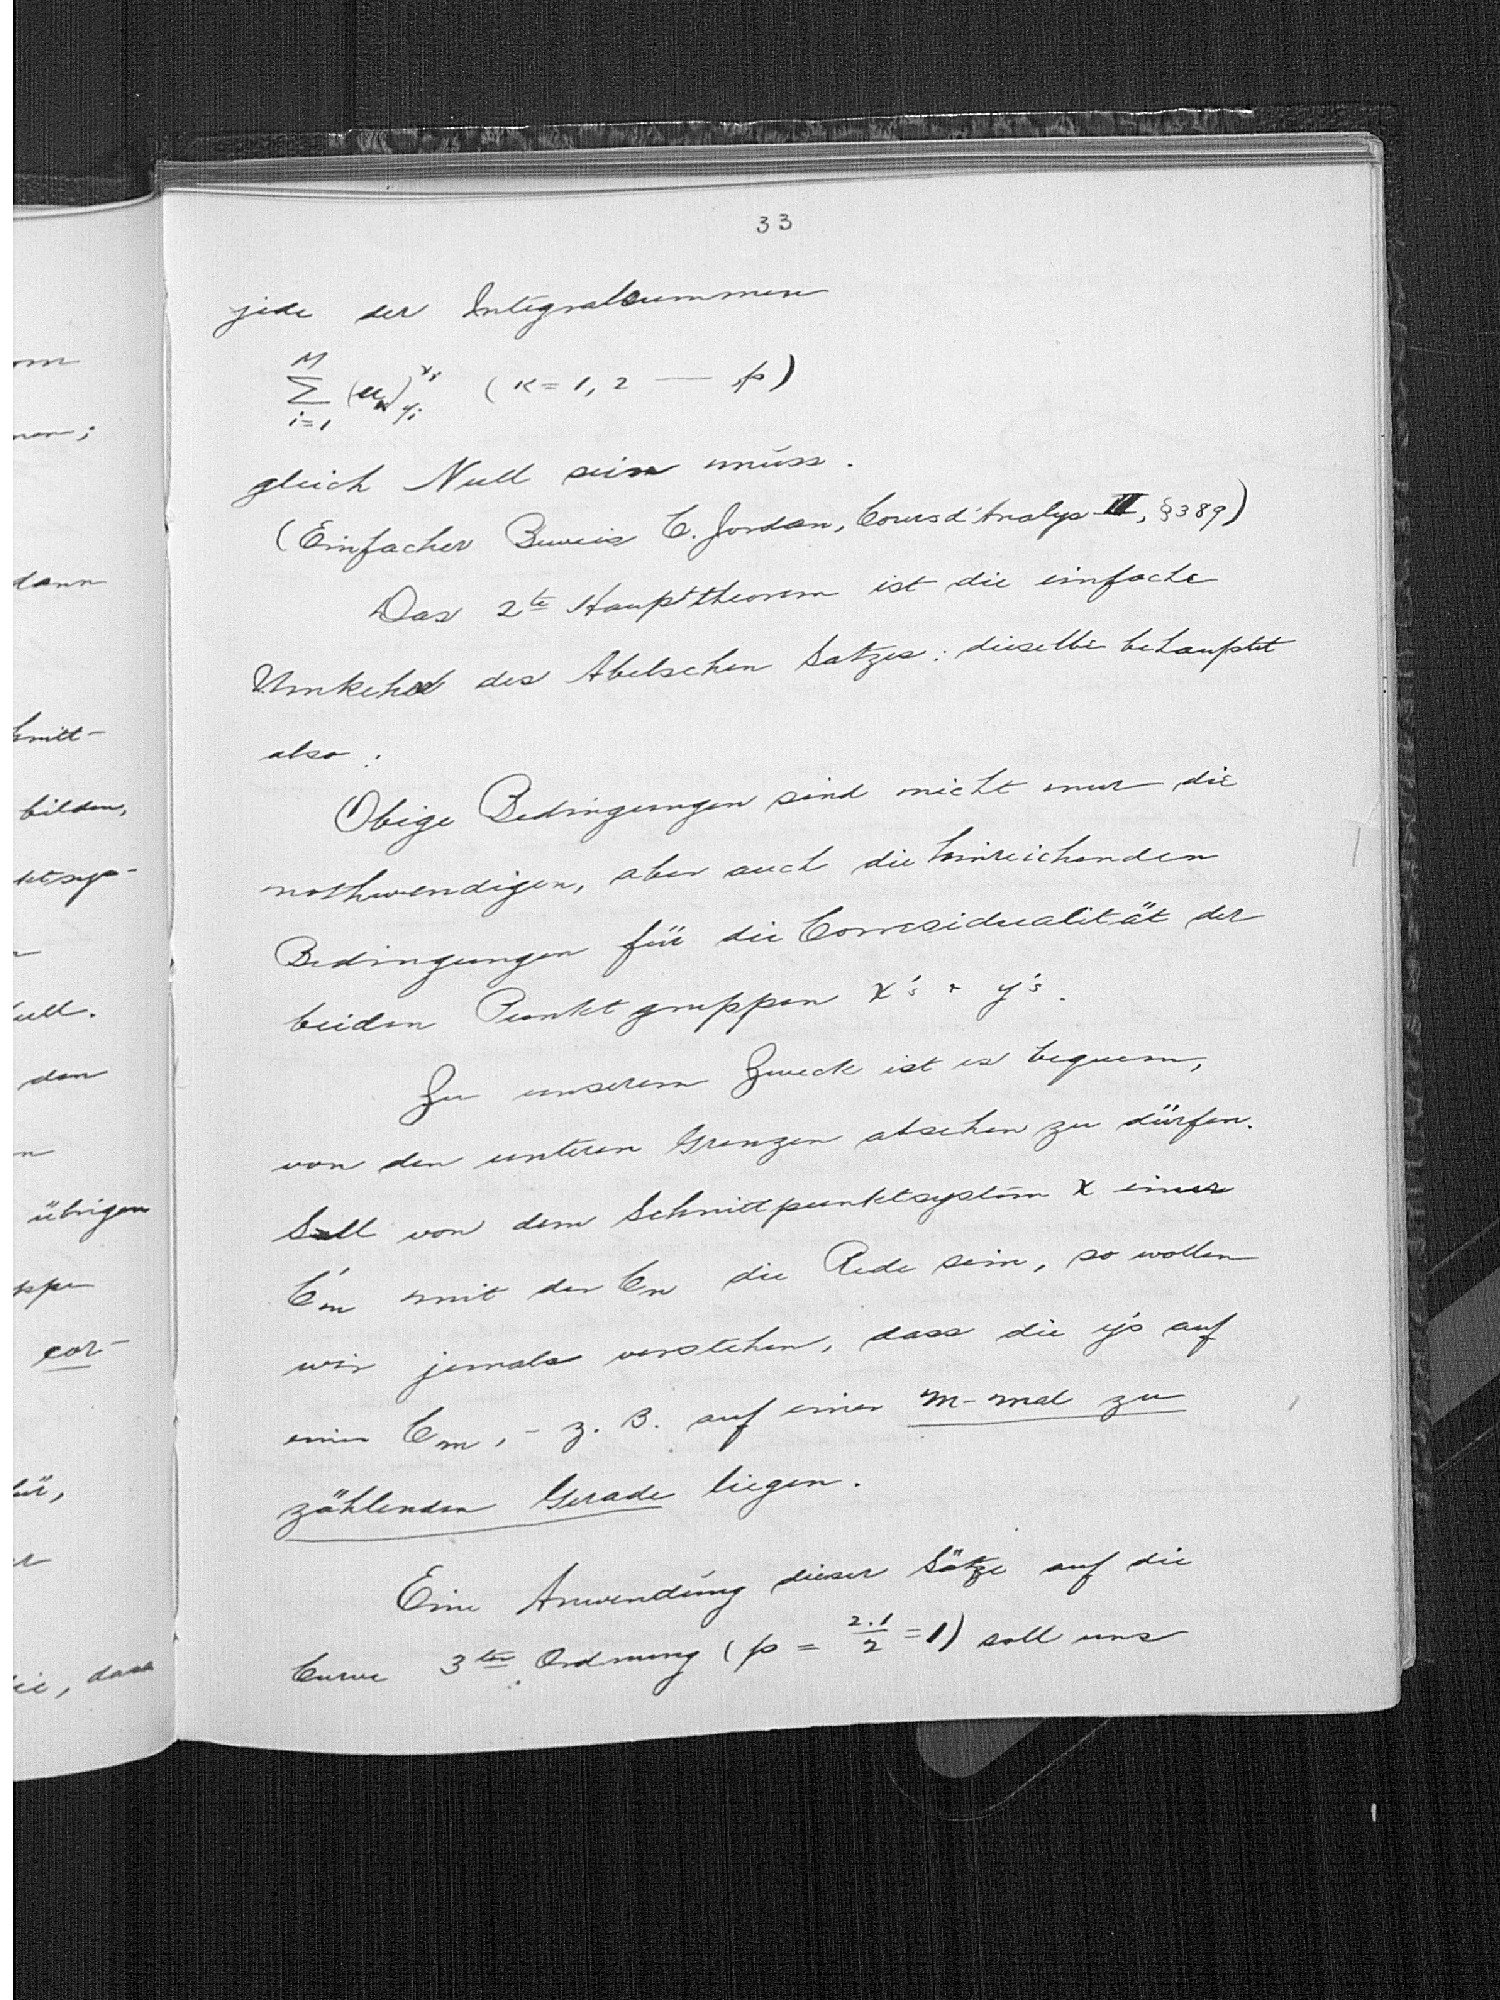 33
jede der Integralsummen
M
∑ (u_κ)^{x_i}_{y_i} (κ = 1, 2 — p)
i=1
gleich Null sein muss.
(Einfacher Beweis C. Jordan, Cours d'Analys II, § 389)
Das 2te Haupttheorem ist die einfache
Umkehr des Abelschen Satzes: dieselbe behauptet
also:
Obige Bedingungen sind nicht nur die
nothwendigen, aber auch die hinreichenden
Bedingungen für die Corresidualität der
beiden Punktgruppen x's + y's.
Zu unserem Zweck ist es bequem,
von den unteren Grenzen absehen zu dürfen.
Soll von dem Schnittpunktsystem x einer
C'm mit der Cn die Rede sein, so wollen
wir jemals verstehen, dass die y's auf
einer Cm, - z. B. auf einer m-mal zu
zählenden Gerade liegen.
Eine Anwendung dieser Sätze auf die
Curve 3ter Ordnung (p = 2.1/2 = 1) soll uns
om
dann
hnitt-
bilden,
ktsys-
ull.
den
n
übrigen
ppe
cor-
ür,
ie, dass